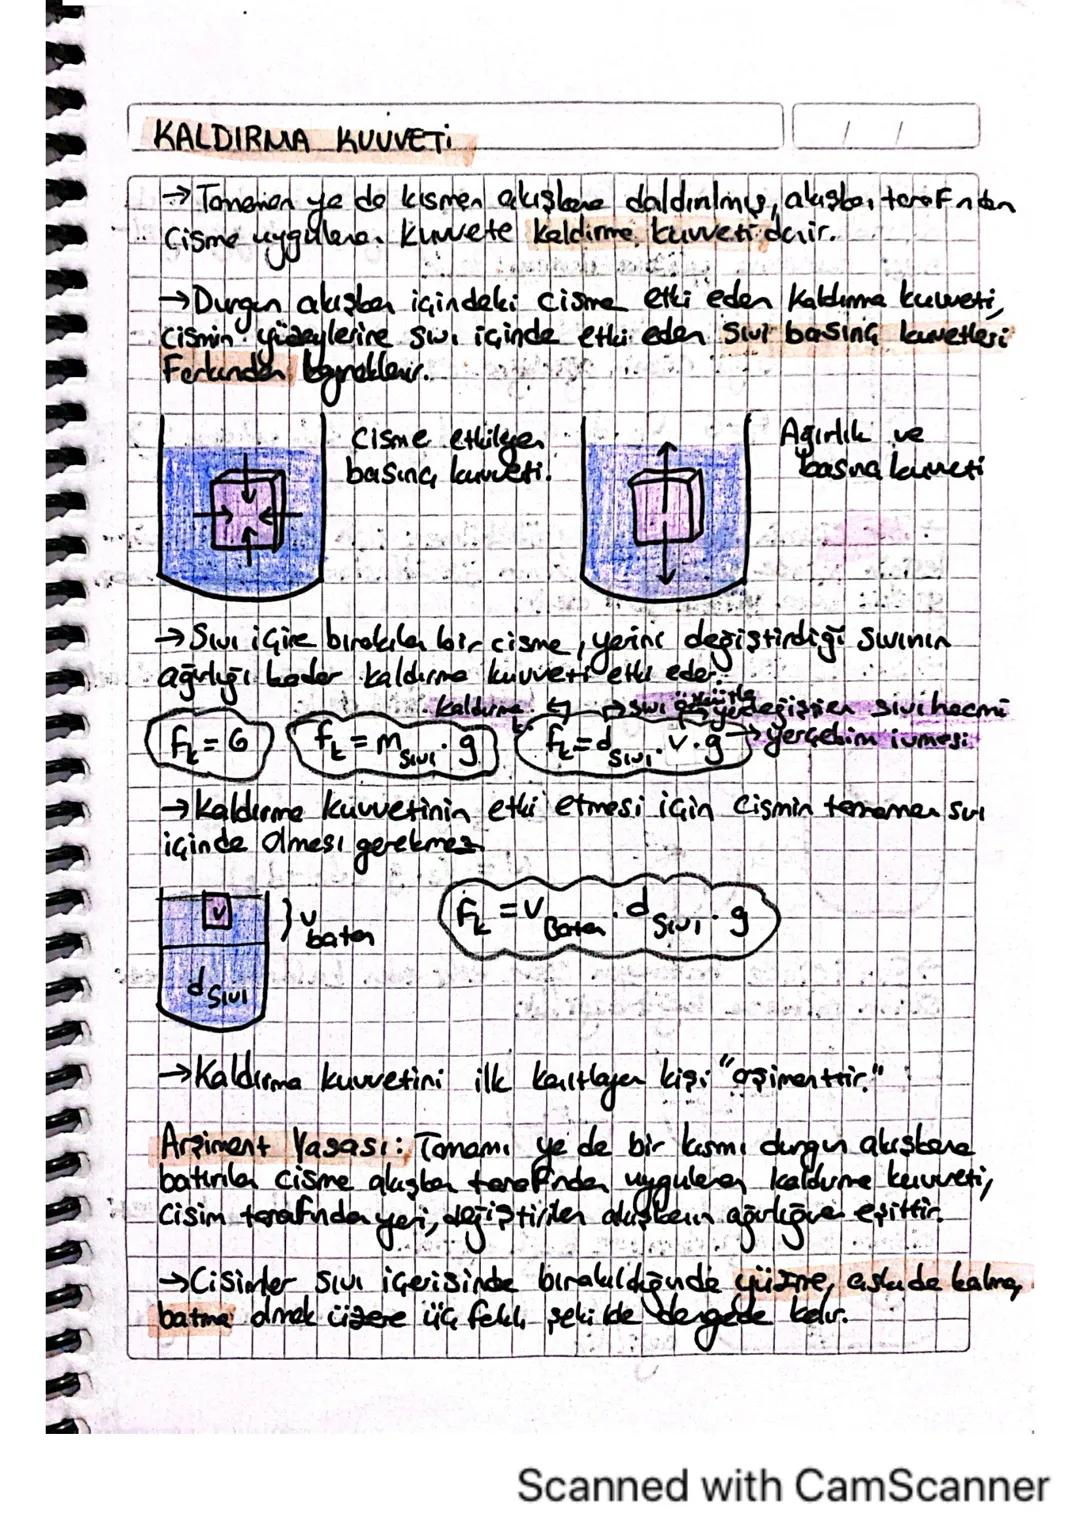 KALDIRMA KUVVETİ
/ /
→ Tamamen ya da kısmen akışkana daldırılmış, akışkan tarafından
Cisme uygulanan kuvvete kaldırma kuvveti denir.
→ Durgun akışkan içindeki cisme etki eden kaldırma kuvveti,
cismin yüzeylerine sıvı içinde etki eden sıvı basınç kuvvetleri
Farkından kaynaklanır.
Cisme etkileyen
basınç kuvveti.
Ağırlık ve
basınç kuvveti
→ Sıvı içine bırakılan bir cisme, yerini değiştirdiği sıvının
ağırlığı kadar kaldırma kuvveti etki eder.
kaldırma k. ↰ ↱ sıvı yer değiştiren sıvı hacmi
Fk = G
Fk = msıvı . g
Fk = dsıvı . v . g → yerçekim ivmesi
→ Kaldırma kuvvetinin etki etmesi için cismin tamamen sıvı
içinde olması gerekmez.
v
} vbatan
dsıvı
Fk = VBatan . dsıvı . g
→ Kaldırma kuvvetini ilk kanıtlayan kişi "arşimenttir."
Arşiment Yasası: Tamamı ya da bir kısmı durgun akışkana
batırılan cisme akışkan tarafından uygulanan kaldırma kuvveti,
cisim tarafından yeri, değiştirilen akışkanın ağırlığına eşittir.
→ Cisimler sıvı içerisinde bırakıldığında yüzme, askıda kalma,
batma olmak üzere üç farklı şekilde dengede kalır.
Scanned with CamScanner